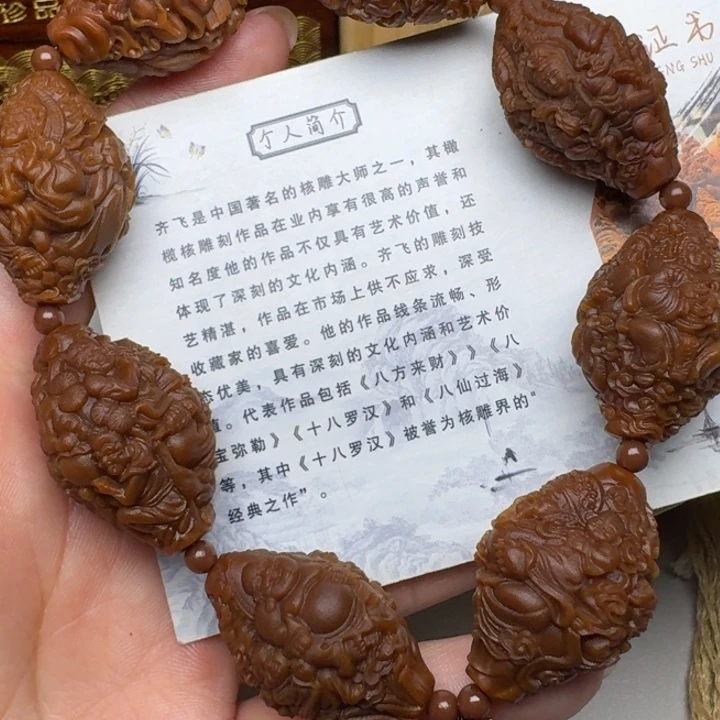 珍品
证书
ENG SHU
个人简介
齐飞是中国著名的核雕大师之一，其橄
榄核雕刻作品在业内享有很高的声誉和
知名度他的作品不仅具有艺术价值，还
体现了深刻的文化内涵。齐飞的雕刻技
艺精湛，作品在市场上供不应求，深受
收藏家的喜爱。他的作品线条流畅、形
态优美，具有深刻的文化内涵和艺术价
值。代表作品包括《八方来财》》《八
宝弥勒》《十八罗汉》和《八仙过海》
等，其中《十八罗汉》被誉为核雕界的"
经典之作"。